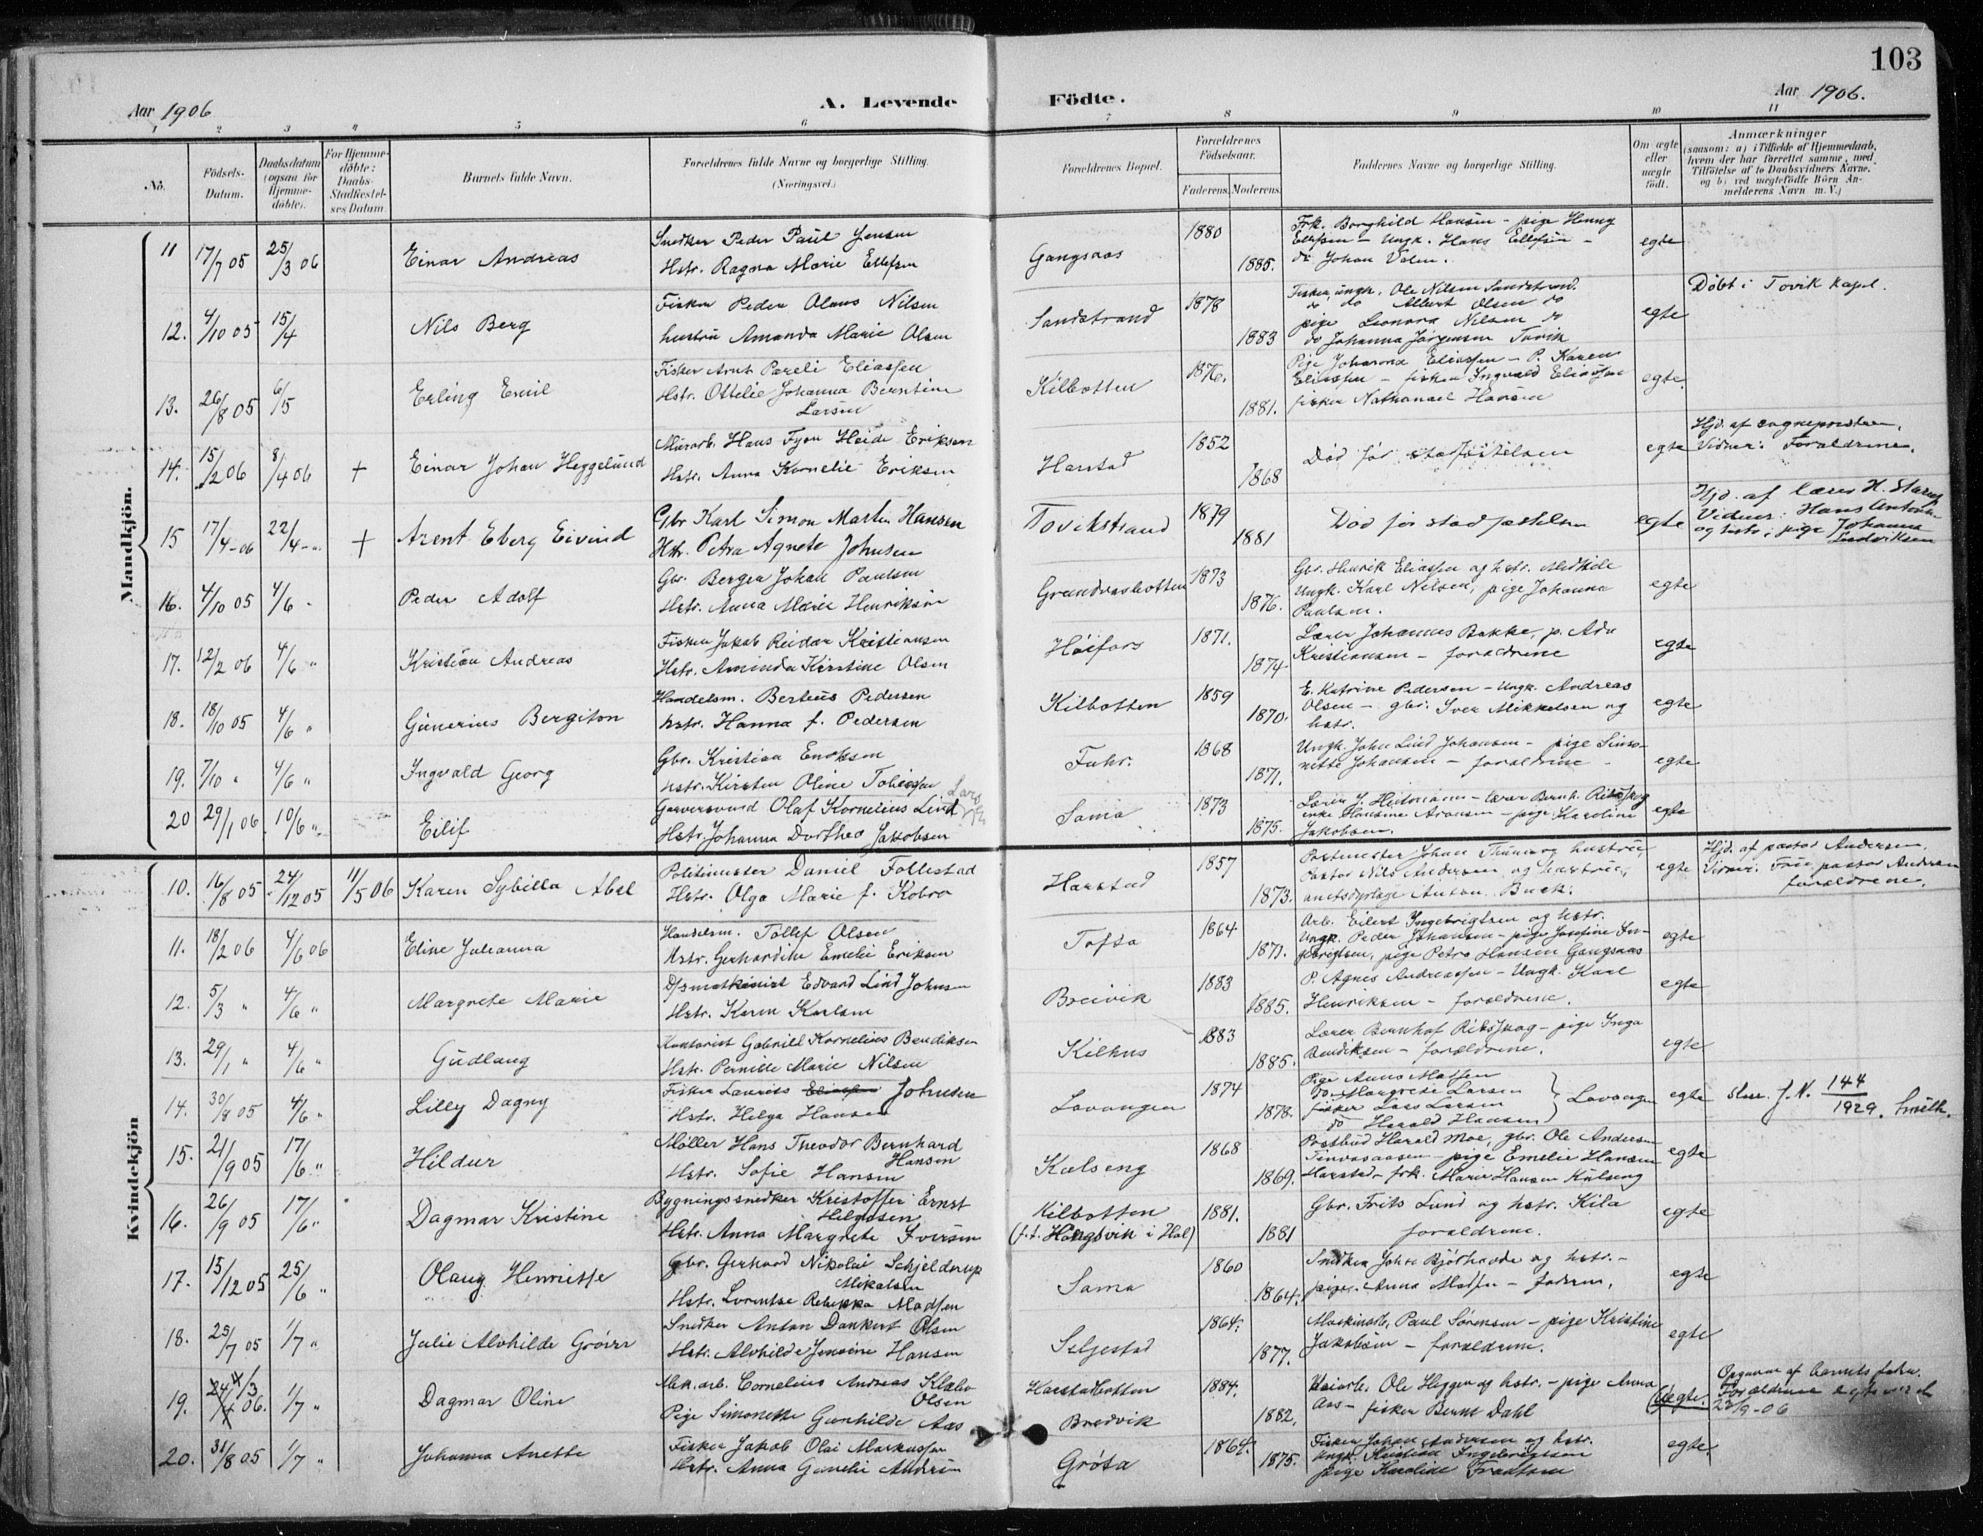 103
Aar 1906
A. Levende
Födte.
Aar 1906.
1 2 3 4 5 6 7 8 9 10 11
No.
Födsels-
Datum.
Daabsdatum
(ogsaa for
Hjemme-
döbte).
For Hjemme-
döbte:
Daabs-
Stadfæstel-
ses Datum
Barnets fulde Navn.
Forældrenes fulde Navne og borgerlige Stilling.
(Næringsvei.)
Forældrenes Bopæl.
Forældrenes
Födselsaar.
Faderens. Moderens.
Faddernes Navne og borgerlige Stilling.
Om ægte
eller
uægte
födt.
Anmærkninger
(saasom: a) i Tilfælde af Hjemmedaab,
hvem der har forrettet samme, med
Tilföielse af to Daabsvidners Navne,
og b) ved uægtefödte Börn An-
melderens Navn m. V.)
Mandkjön.
11 17/7 05 25/3 06 Einar Andreas
Snedker Peder Paul Jensen
Hstr. Ragna Marie Ellefsen
Gangsaas 1880 1885.
Frk. Borghild Hansen – pige Henny
Ellefsen – Ungk. Hans Ellefsen –
do Johan Valen.
egte
12. 4/10 05 15/4 Nils Berg
Fisker Peder Olaus Nilsen
hustru Amanda Marie Olsen
Sandstrand 1878 1883
Fisker, ungk. Ole Nilsen Sandstrand.
do do Albert Olsen do
pige Leonora Nilsen do
do Johanna Jørgensen Tovik
egte
Døbt i Tovik kapel.
13. 26/8 05 6/5 Erling Emil
Fisker Arnt Pareli Eliassen
Hstr. Ottelie Johanna Berntine
Larsen
Kilbotten 1876. 1881.
Pige Johanna Eliassen – P. Karen
Eliassen – fisker Ingvald Eliassen
fisker Nathanael Hansen
egte.
14. 15/2 06 8/4 06 + Einar Johan Heggelund
Murarb. Hans Fyen Heide Eriksen
Hstr. Anna Kornelie Eriksen
Harstad 1852 1868
Død før stadfæstelsen
egte
Hjd. af sognepresten.
Vidner: Forældrene.
15 17/4-06 22/4-" + Arent Eberg Eivind
Gbr Karl Simon Martin Hansen
Hstr. Petra Agnete Johnsen
Tovikstrand 1879 1881
Død før stadfæstelsen
egte
Hjd. af lærer H.
Vidner: Hans Anton
og hstr., pige Johanna
Ludviksen
16. 4/10 05 4/6 " Peder Adolf
Gbr. Berger Johan Paulsen
Hstr. Anna Marie Henriksen
Grundvasbotten 1873 1876.
Gbr. Henrik Eliassen og hstr. Methile
Ungk. Karl Nilsen, pige Johanna
Paulsen.
egte
17. 12/2 06 4/6 " Kristian Andreas
Fisker Jakob Reidar Kristiansen
Hstr. Aminda Kirstine Olsen
Høifors 1871. 1874
Lærer Johannes Bakke, p. Ada
Kristiansen – forældrene
egte
18. 18/10 05 4/6 " Gunerius Bergiton
Handelsm. Berteus Pedersen
hstr. Hanna f. Pedersen
Kilbotten 1859 1870.
E. Katrine Pedersen – Ungk. Andreas
Olsen – gbr. Iver Mikkelsen og
hstr.
egte
19. 7/10 " 4/6 " Ingvald Georg
Gbr. Kristian Eriksen
hstr. Kirsten Oline Tobiassen
1868 1871.
Ungk. John Lind Johansen – pige Simo-
nette Johansen – forældrene
egte
20 29/1 06 10/6 " Eilif
Garversvend Olaf Kornelius Lind
Hstr. Johanna Dorthea Jakobsen
Sama 1873 1875.
Lærer J. – lærer Bernh. Ribsskog
enke Hansine Aronsen – pige Karoline
Jakobsen.
egte
Kvindekjön
10. 16/8 05 24/12 05 11/5 06 Karen Sybilla Abel
Politimester Daniel Follestad
Hstr. Olga Marie f. Kobro
Harstad 1857 1873.
Postmester Johan og hustru,
Pastor Nils Andersen og hustru,
amtsdyrlæge Anton Buck.
egte
Hjd. af pastor Andersen.
Vidner: Frue pastor Andersen
forældrene.
11. 18/2 06 4/6 06 Eline Julianna
Handelsm. Tollef Olsen
Hstr. Gerhardine Emelie Eriksen
Tofta 1864 1871.
Arb. Eilert Ingebrigtsen og hstr.
Ungk. Peder Johansen – pige Josefine In-
gebrigtsen, pige Petra Hansen Gangsaas
egte
12. 5/3 " 4/6 " Margrete Marie
D/smaskinist Edvard Lind Johnsen
Hstr. Karen Karlsen
Breivik 1883 1885.
P. Agnes Andreassen – Ungk. Karl
Henriksen – forældrene.
egte
13. 29/1 " 4/6 " Gudlaug
Kontorist Gabriell Kornelius Bendiksen
Hstr. Pernille Marie Nilsen
Kilhus 1883 1885.
Lærer Bernhof Ribsskog – pige Inga
Bendiksen – forældrene.
egte
14. 30/8 05 4/6 " Lilly Dagny
Fisker Laurits Eliassen Johnsen
Hstr. Helga Hansen
Lavangen 1874 1878.
Pige Anna Madsen
do Margrete Larsen
fisker Lars Larsen
do Harald Hansen
Lavangen
egte
J. N. 144/1929. Smith.
15. 21/9 05 17/6 " Hildur
Møller Hans Theodor Bernhard
Hansen
Hstr. Sofie Hansen
Kulseng 1868 1869.
Postbud Harald Moe, gbr. Ole Andersen
– pige Emelie Hansen
Harstad – frk. Marie Hansen Kulseng
egte
16. 26/9 05 17/6 " Dagmar Kristine
Bygningssnedker Kristoffer Ernst
Helgesen
Hstr. Anna Margrete Iversen
Kilbotten
(f.t. Hongsvik i Hol)
1881. 1881
Gbr. Frits Lund og hstr. Kila
forældrene.
egte
17. 15/12 05 25/6 " Olaug Henriette
Gbr. Gerhard Nikolai Schjelderup
Mikalsen
Hstr. Lorentse Rebekka Madsen
Sama 1860 1864.
Snedker Johs og hstr. –
pige Anna Madsen – faderen.
egte
18. 25/7 05 1/7 " Julie Alvhilde Grøver
Snedker Anton Dankert Olsen
Hstr. Alvhilde Jensine Hansen
Seljestad 1864. 1877.
Maskinarb. Paul Sørensen – pige Kristine
Jakobsen – forældrene.
egte
19. 4/3 06. 1/7 " Dagmar Oline
Mek. arb. Cornelius Andreas Klæbo
Olsen
Pige Simonette Gunhilde Aas
Harstadbotten
Bredvik
1884. 1882.
Kaiarb. Ole Heggen og hstr. – pige Anna
Aas – fisker Bernt Dahl
Uegte.
Opgiven af barnets fader.
Forældrene egteviet
22/9-06
20. 31/8 05 1/7 " Johanna Anette
Fisker Jakob Olai Markussen
Hstr. Anna Gunelie Andersen
Grøta 1864. 1875.
Fisker Johan Andersen og hstr.
Ungk. Kristian Ingebrigtsen
pige Karoline Frantsen
egte